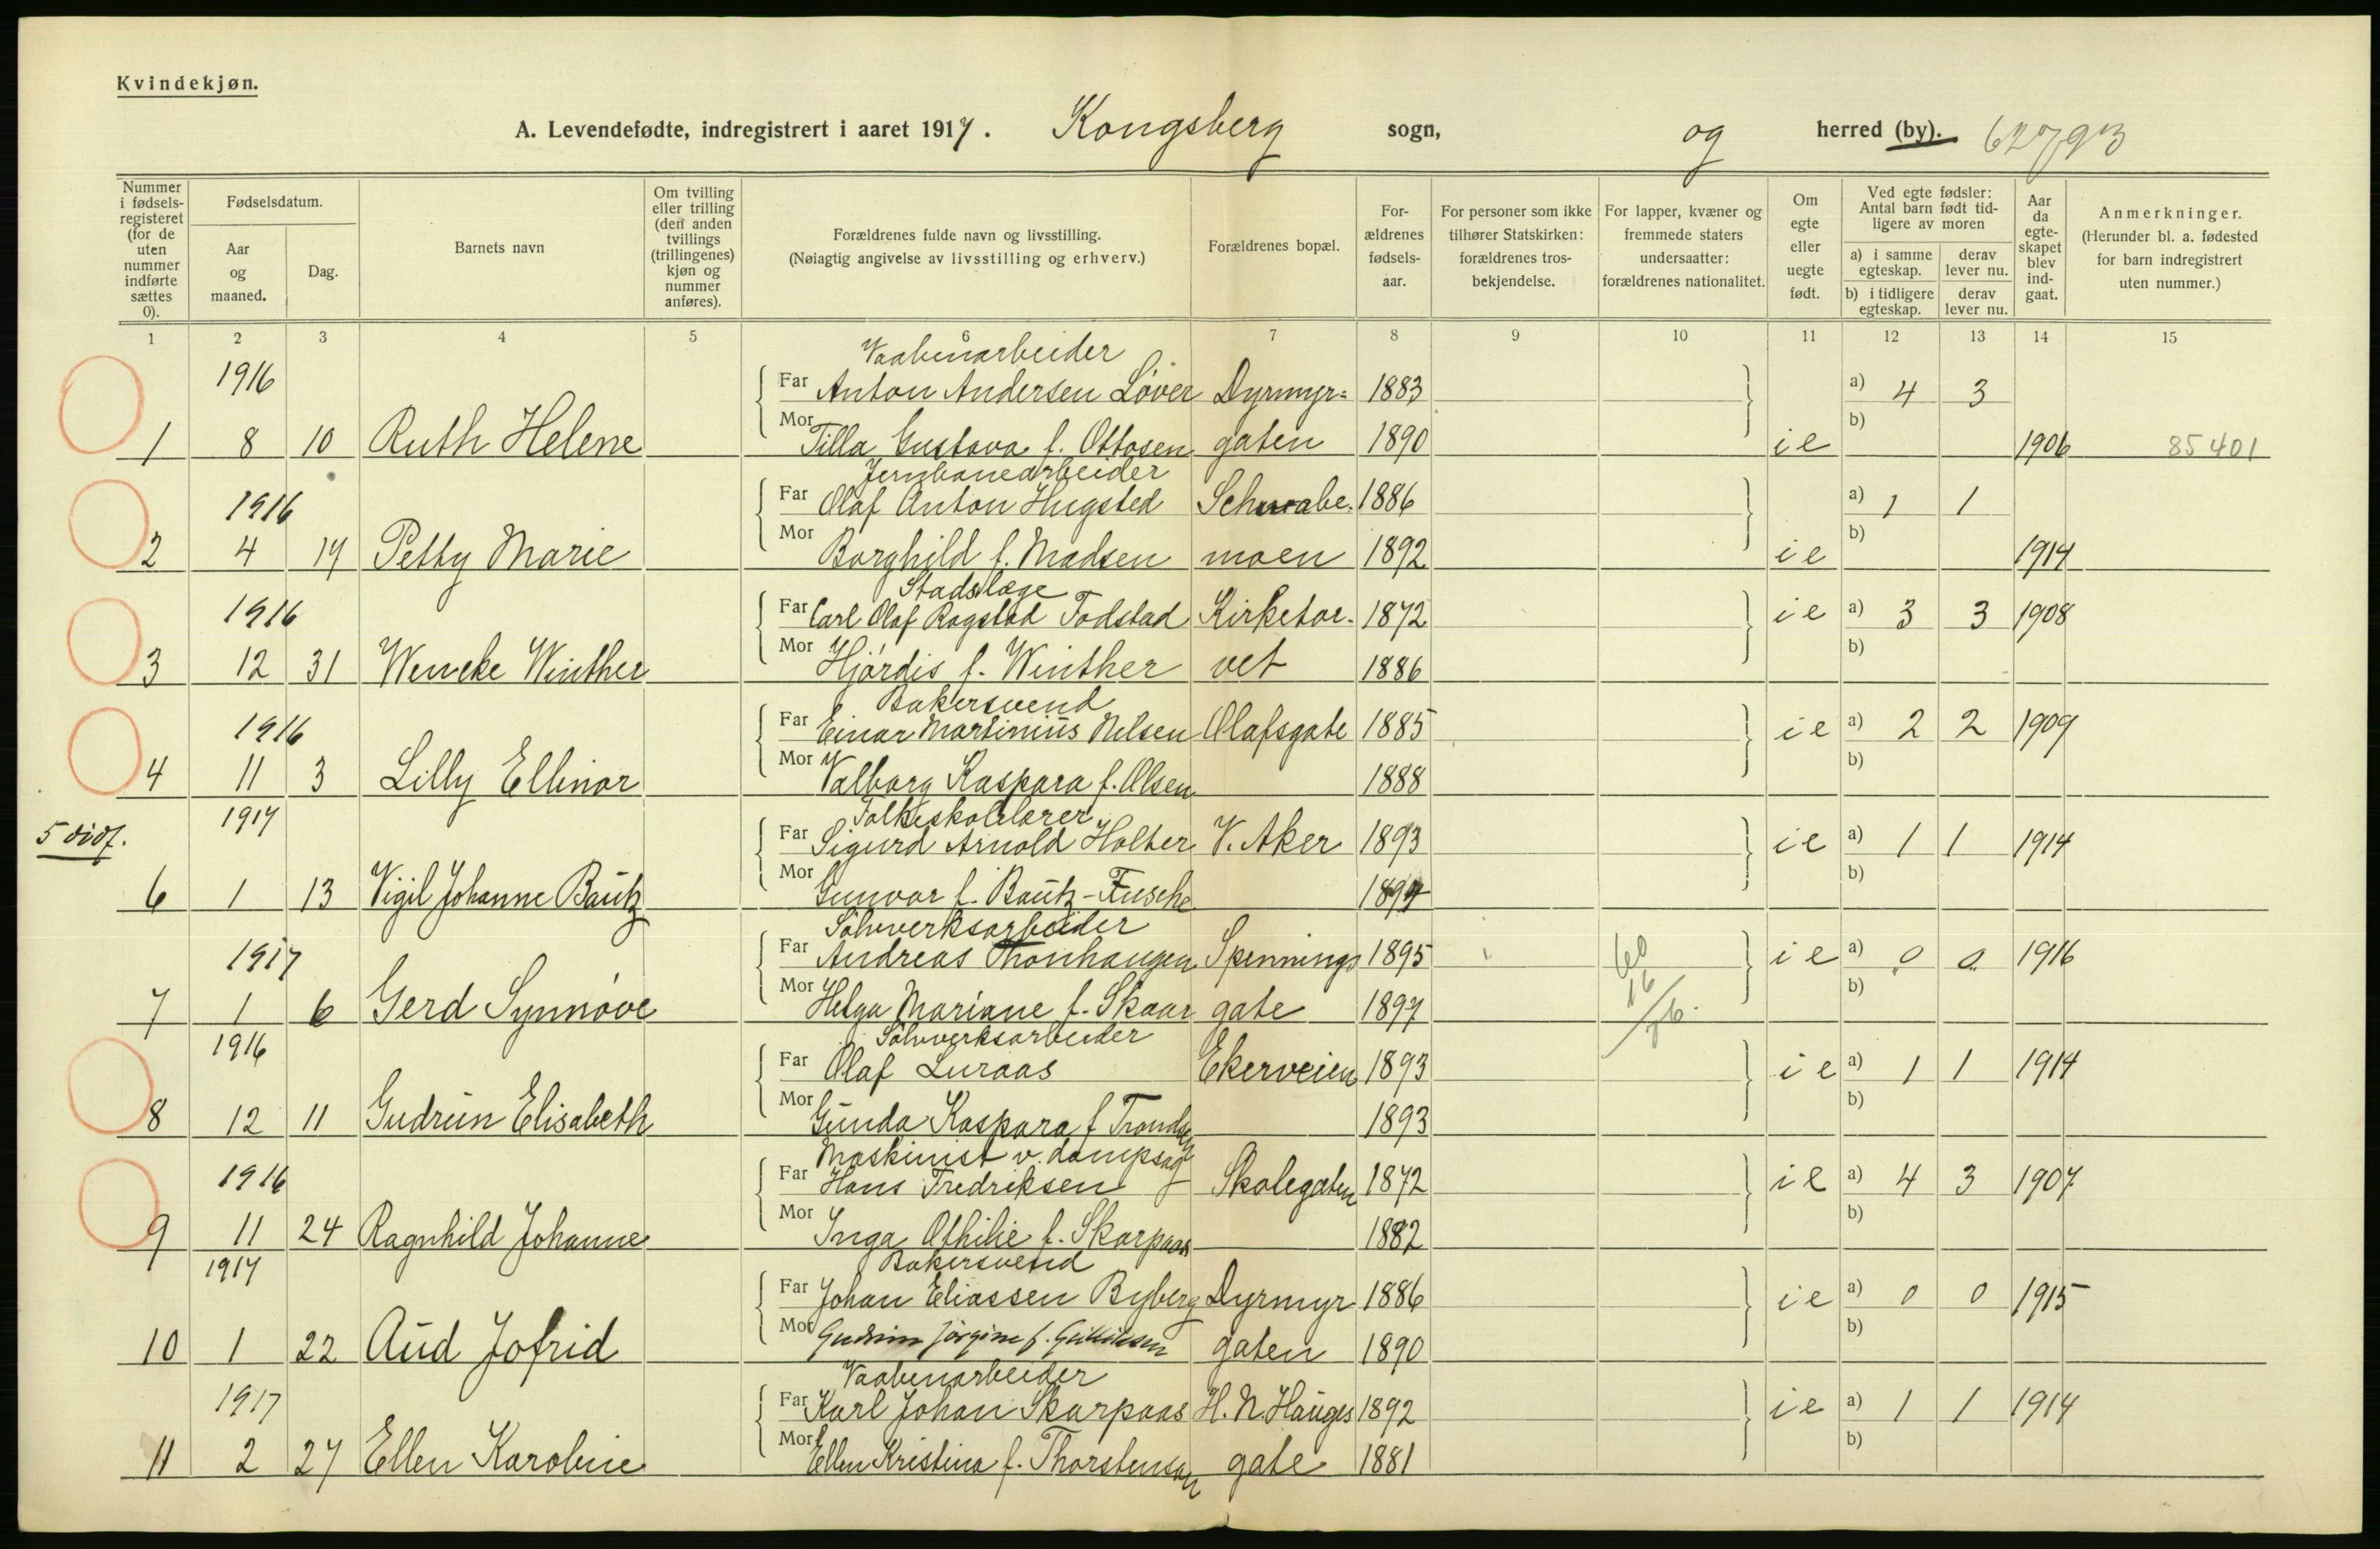 Kvindekjøn.
A. Levendefødte, indregistrert i aaret 1917. Kongsberg sogn, og herred (by). 62793
Nummer i fødselsregisteret (for de uten nummer indførte sættes 0).
Fødselsdatum.
Aar og maaned.
Dag.
Barnets navn
Om tvilling eller trilling (den anden tvillings (trillingenes) kjøn og nummer anføres).
Forældrenes fulde navn og livsstilling.
(Nøiagtig angivelse av livsstilling og erhverv.)
Forældrenes bopæl.
For-ældrenes fødsels-aar.
For personer som ikke tilhører Statskirken: forældrenes tros-bekjendelse.
For lapper, kvæner og fremmede staters undersaatter: forældrenes nationalitet.
Om egte eller uegte født.
Ved egte fødsler: Antal barn født tid-ligere av moren
a) i samme egteskap. derav lever nu.
b) i tidligere egteskap. derav lever nu.
Aar da egte-skapet blev ind-gaat.
Anmerkninger.
(Herunder bl. a. fødested for barn indregistrert uten nummer.)
1 2 3 4 5 6 7 8 9 10 11 12 13 14 15
Vaabenarbeider
1916 Far Anton Andersen Løver Dyrmyr= 1883 a) 4 3
1 8 10 Ruth Helene Mor Tilla Gustava f. Ottosen gaten 1890 ie b) 1906 85401
Jernbanearbeider
1916 Far Olaf Anton Hugsted Schwabe. 1886 a) 1 1
2 4 19 Petty Marie Mor Borghild f. Madsen moen 1892 ie b) 1914
Stadslæge
1916 Far Carl Olaf Rogstad Todstad Kirketor- 1872 ie a) 3 3 1908
3 12 31 Wencke Winther Mor Hjørdis f. Winther vet 1886 b)
Bakersvend
1916 Far Einar Martinius Nilsen Olafsgate 1885 ie a) 2 2 1909
4 11 3 Lilly Ellinor Mor Valborg Kaspara f. Olsen 1888 b)
Folkeskolelærer
5 didf. 1917 Far Sigurd Arnold Holter V. Aker 1893 ie a) 1 1 1914
6 1 13 Vigil Johanne Bautz Mor Gunvor f. Bautz- 1894 b)
Sølvverksarbeider
1917 Far Andreas Thonhaugen Spennings 1895 ie a) 0 0 1916
7 1 6 Gerd Synnøve Mor Helga Mariane f. Skaar gate 1897 b)
Sølvverksarbeider
1916 Far Olaf Luraas Ekerveien 1893 ie a) 1 1 1914
8 12 11 Gudrun Elisabeth Mor Gunda Kaspara f Trondsen 1893 b)
Maskinist v. dampsag
1916 Far Hans Fredriksen Skolegaten 1872 ie a) 4 3 1907
9 11 24 Ragnhild Johanne Mor Inga Othilie f. Skarpaas 1882 b)
Bakersvend
1917 Far Johan Eliassen Byberg Dyrmyr 1886 ie a) 0 0 1915
10 1 22 Aud Jofrid Mor Gudrun Jørgine f. gaten 1890 b)
Vaabenarbeider
1917 Far Karl Johan Skarpaas H. N. Hauges 1892 ie a) 1 1 1914
11 2 27 Ellen Karoline Mor Ellen Kristina f. Thorstensen gate 1881 b)